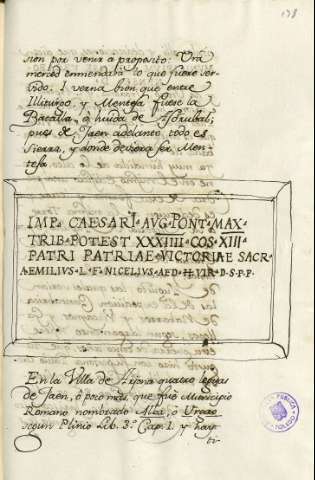 138
sion por venir a proposito. Vra
merced enmendara lo que fuere ser-
vido. I verna bien que entre
Illiturgo, y Mentesa fuese la
Batalla, o huida de Asdrubal,
pues de Jaen adelante todo es
Sierra, y donde deviera ser Men-
tesa.
IMP· CAESARI· AVG· PONT· MAX
TRIB· POTEST XXXIIII· COS· XIII·
PATRI PATRIAE· VICTORIAE SACR
A·AEMILIVS· L· F· NICELIVS· AED· II· VIR· D· S· P· P·
En la Villa de Arjona quatro leguas
de Jaen, ó poco mas, que fué Municipio
Romano nombrado Alba, ó Urgao
segun Plinio Lib. 3º Cap. 1. y